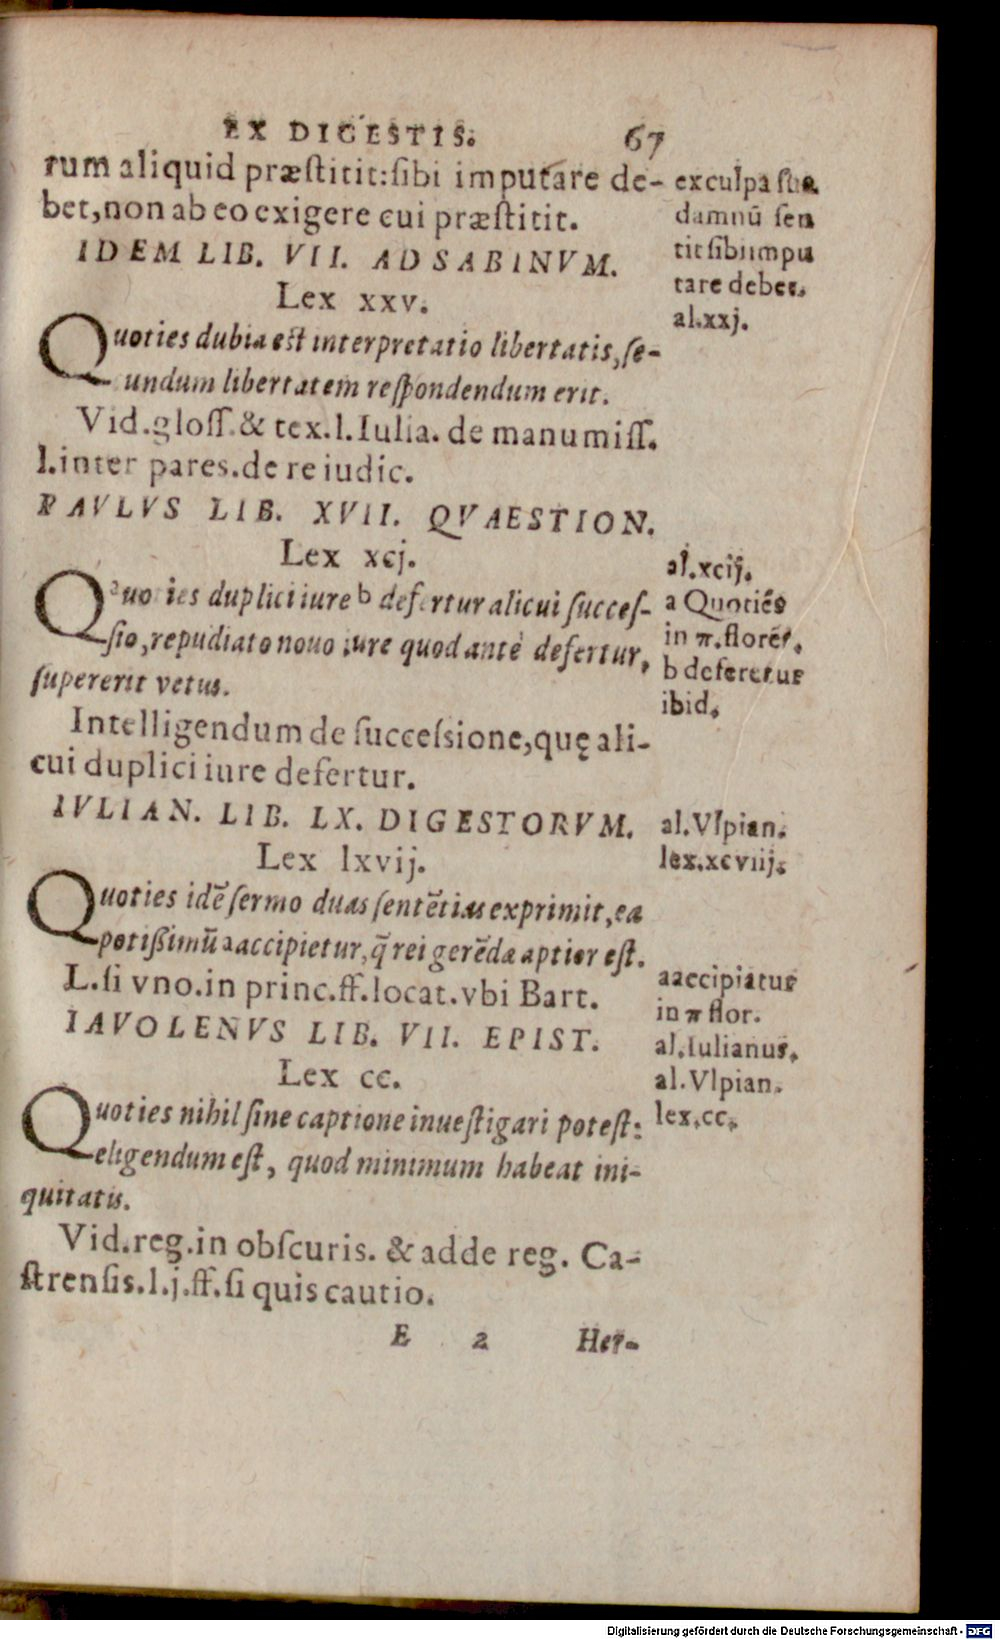 EX DIGESTIS. 67
rum aliquid præstitit:sibi imputare de-
bet,non ab eo exigere cui præstitit.
ex culpa sua
damnū sen
tit sibi impu
tare debet.
al.xxj.
IDEM LIB. VII. AD SABINVM.
Lex xxv.
Quoties dubia est interpretatio libertatis,se-
cundum libertatem respondendum erit.
Vid.gloss.& tex.l.Iulia. de manumiss.
l.inter pares.de re iudic.
PAVLVS LIB. XVII. QVAESTION.
Lex xcj.
al.xcij.
a Quoties
in π.florēt.
b deferetur
ibid.
Quoties duplici iure b defertur alicui succes-
sio,repudiato nouo iure quod antè defertur,
supererit vetus.
Intelligendum de successione,quę ali-
cui duplici iure defertur.
IVLIAN. LIB. LX. DIGESTORVM.
Lex lxvij.
al.Vlpian.
lex.xcviij.
Quoties idē sermo duas sentētias exprimit,ea
potißimū a accipietur,q̃ rei gerēdæ aptior est.
L.si vno.in princ.ff.locat.vbi Bart.
a accipiatur
in π flor.
IAVOLENVS LIB. VII. EPIST.
Lex cc.
al.Iulianus.
al.Vlpian.
lex.cc.
Quoties nihil sine captione inuestigari potest:
eligendum est, quod minimum habeat ini-
quitatis.
Vid.reg.in obscuris. & adde reg. Ca-
strensis.l.j.ff.si quis cautio.
E 2 Her-
Digitalisierung gefördert durch die Deutsche Forschungsgemeinschaft - DFG